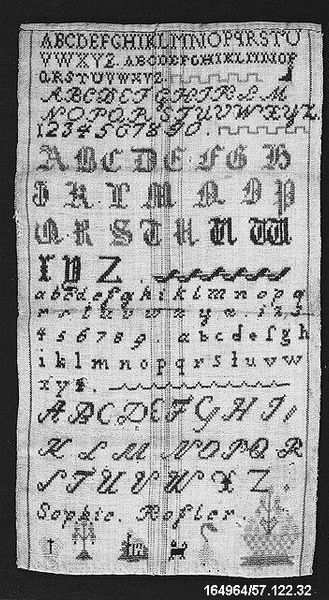 ABCDEFGHIKLMNOPQRSTU
VWXYZ. ABCDEFGHIKLMNOP
QRSTUVWXYZ
ABCDEFGHIKLM
NOPQRSTUVWXYZ.
1234567890.
ABCDEFGH
IKLMNOP
QRSTUVW
XYZ
abcdefghiklmnopq
rstuvwxyz. 123
456789. abcdefgh
iklmnopqrstuvw
xyz.
ABCDEFGHI
KLMNOPQR
STUVWXYZ
Sophie. Rofler
164964/57.122.32